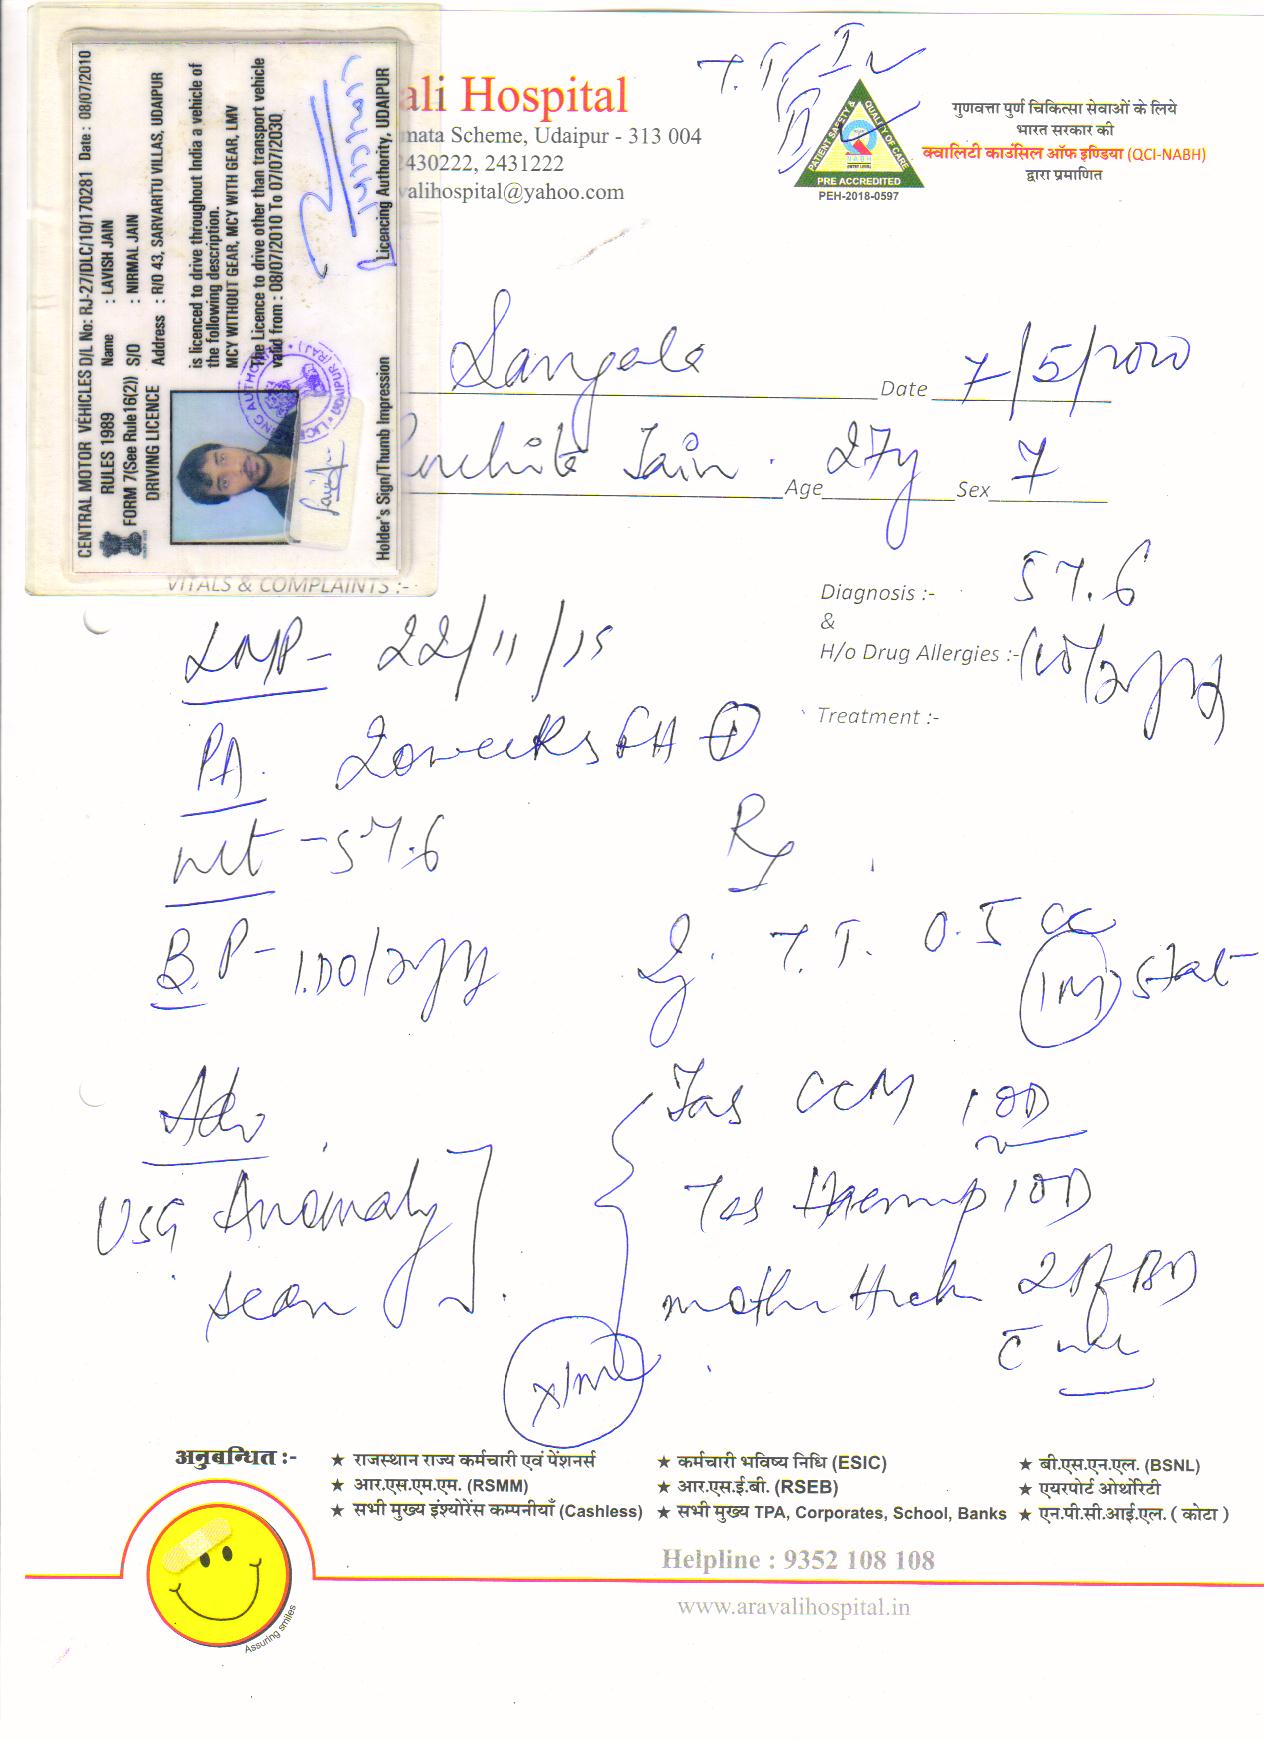 CENTRAL MOTOR VEHICLES D/L No: RJ-27/DLC/10/170281 Date : 08/07/2010
RULES 1989
FORM 7(See Rule16(2))
DRIVING LICENCE
Name : LAVISH JAIN
S/O : NIRMAL JAIN
Address : R/O 43, SARVARITU VILLAS, UDAIPUR
is licenced to drive throughout India a vehicle of
the following description.
MCY WITHOUT GEAR, MCY WITH GEAR, LMV
The Licence to drive other than transport vehicle
valid from : 08/07/2010 To 07/07/2030
Licencing Authority, UDAIPUR
Holder's Sign/Thumb Impression
ali Hospital
mata Scheme, Udaipur - 313 004
2430222, 2431222
valihospital@yahoo.com
T.T.
PATIENT SAFETY & QUALITY OF CARE
NABH
PRE ACCREDITED
PEH-2018-0597
गुणवत्ता पुर्ण चिकित्सा सेवाओं के लिये
भारत सरकार की
क्वालिटि काउंसिल ऑफ इण्डिया (QCI-NABH)
द्वारा प्रमाणित
Date 7/5/2020
Jain. Age 27y Sex F
VITALS & COMPLAINTS :-
Diagnosis :- 57.6
&
H/o Drug Allergies :-
Treatment :-
LMP - 22/11/19
PA. 20weeks
wt - 57.6
B.P -
Rx
Inj. T.T. 0.5 cc
(IM) stat
Adv
USG Anomaly
scan
Tab CCM 1OD
Tab Haemup 1OD
x/m
अनुबन्धित :-
★ राजस्थान राज्य कर्मचारी एवं पेंशनर्स
★ कर्मचारी भविष्य निधि (ESIC)
★ बी.एस.एन.एल. (BSNL)
★ आर.एस.एम.एम. (RSMM)
★ आर.एस.ई.बी. (RSEB)
★ एयरपोर्ट ओथोरिटी
★ सभी मुख्य इंश्योरेंस कम्पनीयाँ (Cashless)
★ सभी मुख्य TPA, Corporates, School, Banks
★ एन.पी.सी.आई.एल. ( कोटा )
Helpline : 9352 108 108
www.aravalihospital.in
Assuring smiles